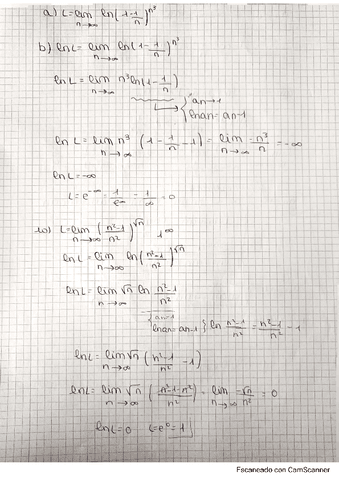 a) L=lim n→∞ ln(1-1/n)^n³
b) lnL= lim n→∞ ln(1-1/n)^n³
lnL= lim n→∞ n³ln(1-1/n)
an→1
lnan=an-1
lnL= lim n→∞ n³ (1-1/n-1) = lim n→∞ -n³/n = -∞
lnL=-∞
L=e^-∞=1/e^∞=1/∞=0
10) L=lim n→∞ (n²-1/n²)^√n 1^∞
lnL=lim n→∞ ln(n²-1/n²)^√n
lnL=lim n→∞ √n ln n²-1/n²
an→1
lnan=an-1 } ln n²-1/n² = n²-1/n² -1
lnL=lim n→∞ √n (n²-1/n² -1)
lnL=lim n→∞ √n (n²-1-n²/n²) = lim n→∞ -√n/n² = 0
lnL=0 L=e⁰=1
Escaneado con CamScanner